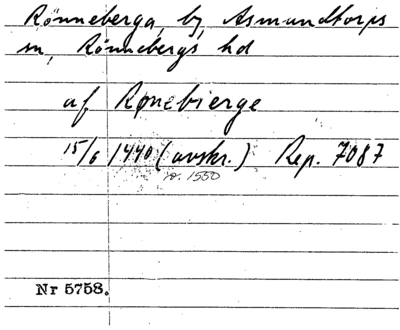 Rönneberga, by, Asmundtorps
sn, Rönnebergs hd
af Rønebierge
15/6 1440 (avskr.) Rep. 7087
c. 1550
Nr 5758.